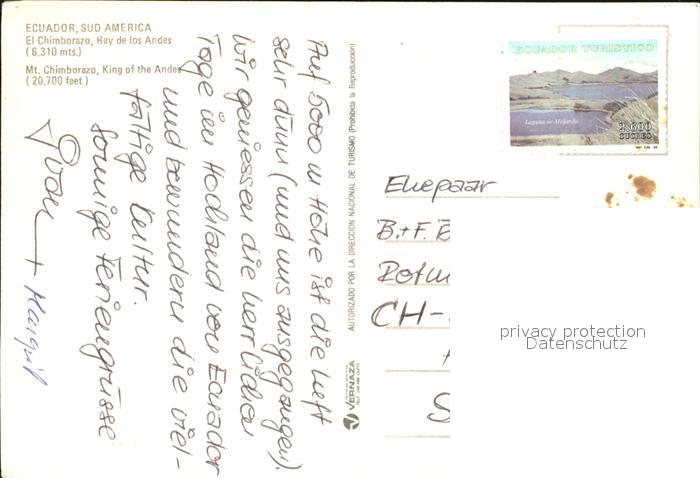 ECUADOR, SUD AMERICA
El Chimborazo, Rey de los Andes
( 6.310 mts.)
Mt. Chimborazo, King of the Andes
( 20,700 feet )
Auf 5000 m Höhe ist die Luft
sehr dünn (und uns ausgegangen).
Wir geniessen die herrlichen
Tage im Hochland von Ecuador
und bewundern die viel-
fältige Kultur.
Sonnige Feriengrüsse
AUTORIZADO POR LA DIRECCION NACIONAL DE TURISMO (Prohibida la Reproducción)
VERNAZA
ECUADOR TURISTICO
Laguna de Mojanda
2.600
SUCRES
Ehepaar
B.+F. B
CH-
S
privacy protection
Datenschutz